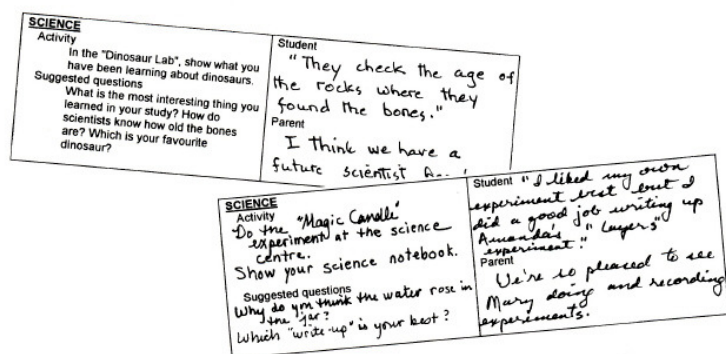 SCIENCE
Activity
In the "Dinosaur Lab", show what you
have been learning about dinosaurs.
Suggested questions
What is the most interesting thing you
learned in your study? How do
scientists know how old the bones
are? Which is your favourite
dinosaur?
Student
"They check the age of
the rocks where they
found the bones."
Parent
I think we have a
future scientist
SCIENCE
Activity
Do the "Magic Candle"
experiment at the science
centre.
Show your science notebook.
Suggested questions
Why do you think the water rose in
the jar?
Which "write-up" is your best?
Student "I liked my own
experiment best but I
did a good job writing up
Amanda's "Layers"
experiment."
Parent
We're so pleased to see
Mary doing and recording
experiments.